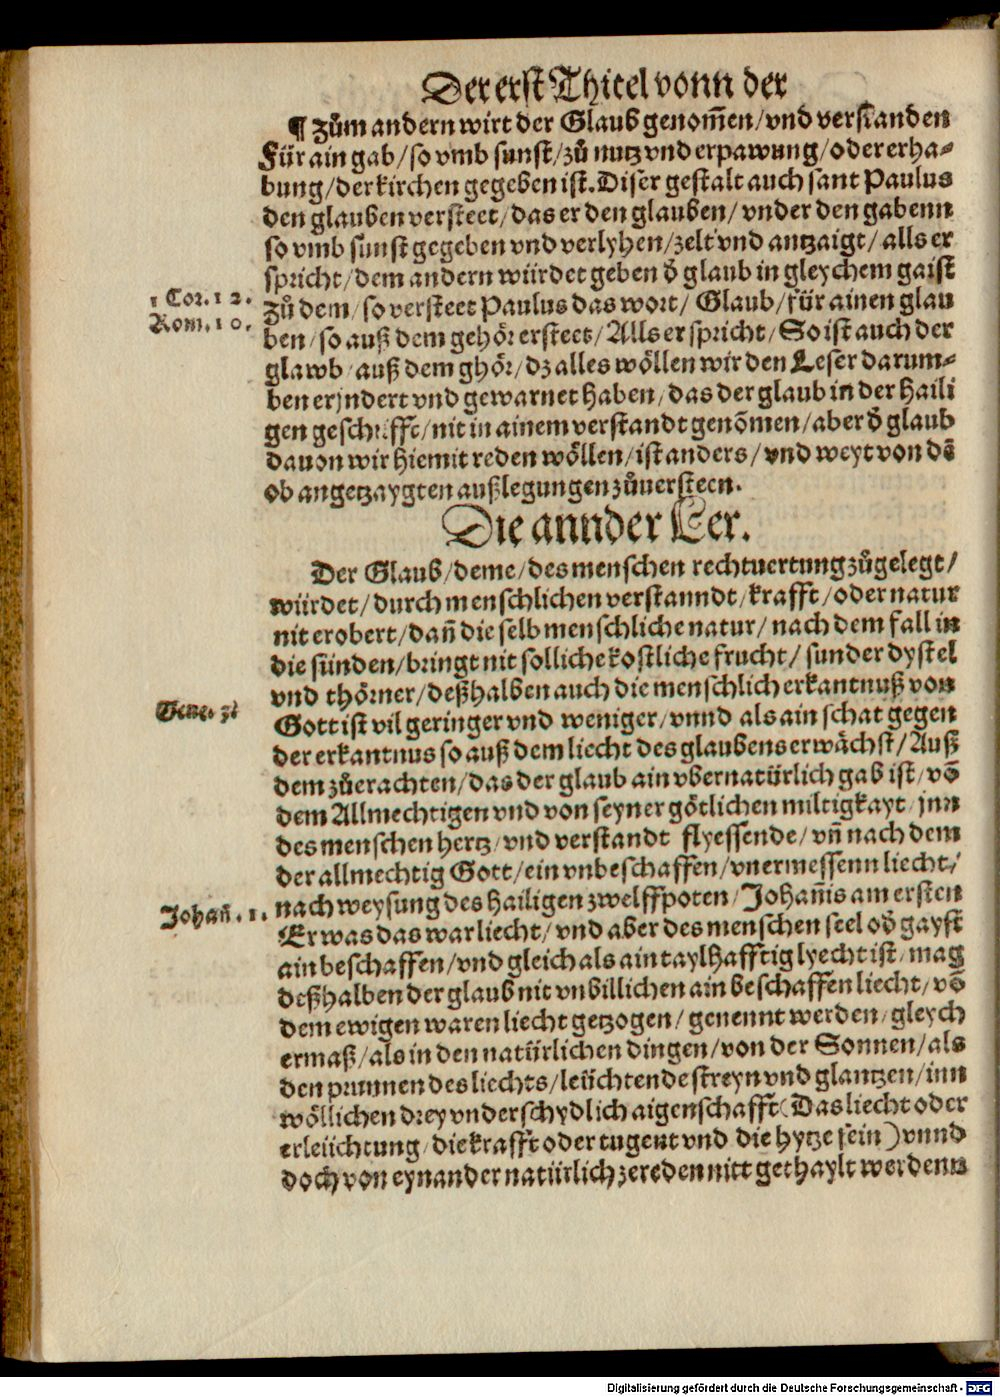 Der erst Thitel vonn der
¶ Zům andern wirt der Glaub genom̃en/vnd verstanden
Für ain gab/so vmb sunst/zů nutz vnd erpawung/oder erha-
bung/der kirchen gegeben ist. Diser gestalt auch sant Paulus
den glauben versteet/das er den glauben/vnder den gabenn
so vmb sunst gegeben vnd verlyhen/zelt vnd antzaigt/alls er
spricht/dem andern würdet geben d̄ glaub in gleychem gaist
1 Cor. 12.
Zů dem/so versteet Paulus das wort/Glaub/für ainen glau
Rom. 10.
ben/so auß dem gehör ersteet/Alls er spricht/So ist auch der
glawb/auß dem ghör/dz alles wöllen wir den Leser darum-
ben erjndert vnd gewarnet haben/das der glaub in der haili
gen geschrifft/nit in ainem verstandt genōmen/aber d̄ glaub
dauon wir hiemit reden wöllen/ist anders/vnd weyt von dē
ob angetzaygten außlegungen zůuersteen.
Die annder Leer.
Der Glaub/deme/des menschen rechtuertung zůgelegt/
würdet/durch menschlichen verstanndt/krafft/oder natur
nit erobert/dañ die selb menschliche natur/nach dem fall in
die sünden/bringt nit solliche kostliche frucht/sunder dystel
vnd thörner/deßhalben auch die menschlich erkantnuß von
Gene. 3.
Gott ist vil geringer vnd weniger/vnnd als ain schat gegen
der erkantnus so auß dem liecht des glaubens erwächst/Auß
dem zůerachten/das der glaub ain vbernatürlich gab ist/vō
dem Allmechtigen vnd von seyner götlichen miltigkayt/jnn
des menschen hertz/vnd verstandt flyessende/vñ nach dem
der allmechtig Gott/ein vnbeschaffen/vnermessenn liecht/
Johañ. 1.
nach weysung des hailigen zwelffpoten/Johañis am ersten
Er was das war liecht/vnd aber des menschen seel od̄ gayst
ain beschaffen/vnd gleich als ain taylhafftig lyecht ist/mag
deßhalben der glaub nit vnbillichen ain beschaffen liecht/vō
dem ewigen waren liecht getzogen/genennt werden/gleych
ermaß/als in den natürlichen dingen/von der Sonnen/als
den prunnen des liechts/leüchtende streyn vnd glantzen/inn
wöllichen drey vnderschydlich aigenschafft (Das liecht oder
erleüchtung/die krafft oder tugent vnd die hytze sein) vnnd
doch von eynander natürlich zereden nitt gethaylt werdenn
Digitalisierung gefördert durch die Deutsche Forschungsgemeinschaft - DFG